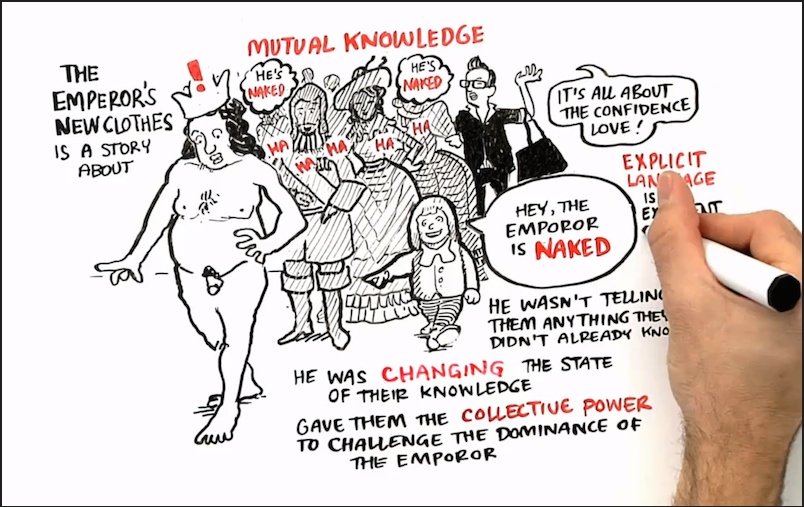 MUTUAL KNOWLEDGE
THE
EMPEROR'S
NEW CLOTHES
IS A STORY
ABOUT
!
HE'S
NAKED
HE'S
NAKED
HA
HA
HA
HA
HA
IT'S ALL ABOUT
THE CONFIDENCE
LOVE!
EXPLICIT
LANGUAGE
IS
HEY, THE
EMPOROR
IS NAKED
HE WASN'T TELLING
THEM ANYTHING THEY
DIDN'T ALREADY
HE WAS CHANGING THE STATE
OF THEIR KNOWLEDGE
GAVE THEM THE COLLECTIVE POWER
TO CHALLENGE THE DOMINANCE OF
THE EMPOROR